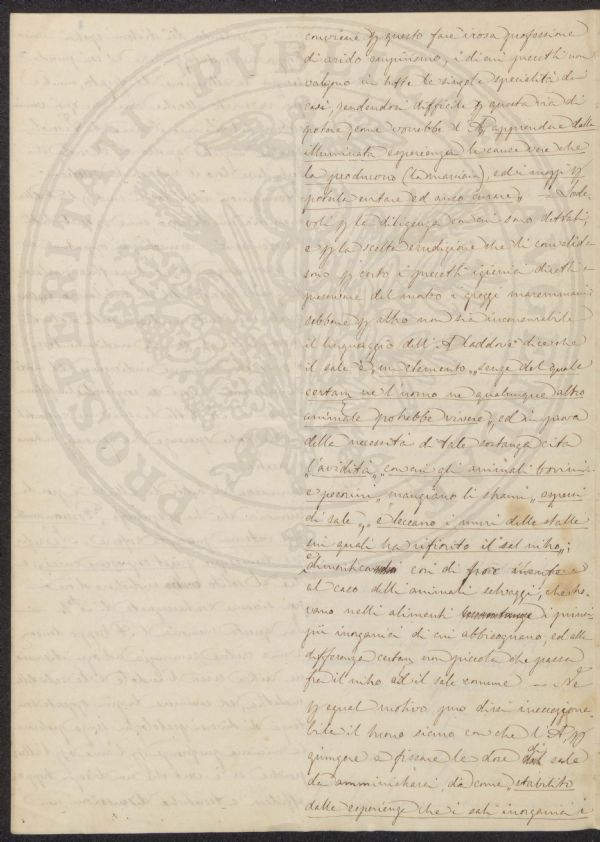 conviene p questo fare irosa professione
di arido empirismo, i di cui precetti non
valgono in tutte le singole specialità di
casi, rendendosi difficile p questa via di
potere, come vorrebbe l'A, apprendere dalla
illuminata esperienza le cause vere che
la producono (la marciaia), ed i mezzi p
poterla evitare ed anco curare„ — Lode-
voli p la diligenza con cui sono dettati,
e p la scelta erudizione che li convalida
sono p certo i precetti igienici diretti a
preservare dal morbo i greggi maremmani;
sebbene p altro non sia incensurabile
il linguaggio dell'A laddove dice che
il sale è „un elemento„ senza del quale
certam ne l'uomo ne qualunque altro
animale potrebbe vivere„ ed in prova
della necessità di tale sostanza cita
„l'avidità„ con cui gli animali bovini
e pecorini „mangiano li strami „aspersi
di sale„ e leccano i muri delle stalle
sui quali ha rifiorito il sal nitro„;
dimentican così di
al caso delli animali selvaggi, che tro-
vano nelli alimenti i princi-
pii inorganici di cui abbisognano, ed alla
differenza certam non piccola che passa
fra il nitro ed il sale comune — Ne
p egual motivo puo dirsi ineccezione-
bile il tuono sicuro con che l'A p
giungere a fissare le dose di sale
da amministrarsi, dà come „stabilito
dalla esperienza che i sali inorganici i
PROSPERITATI PVB